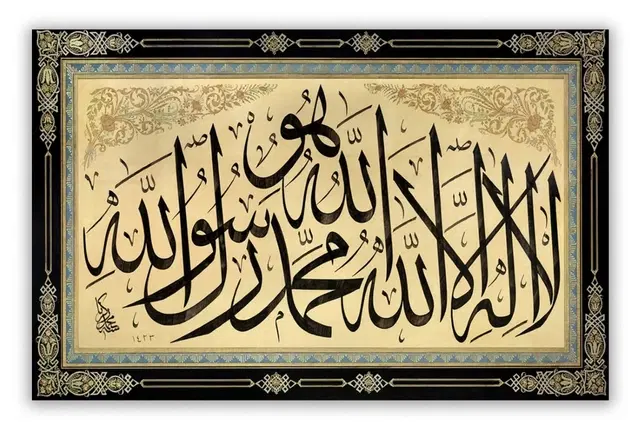 هو الله
لا اله الا الله محمد رسول الله
١٤٢٣